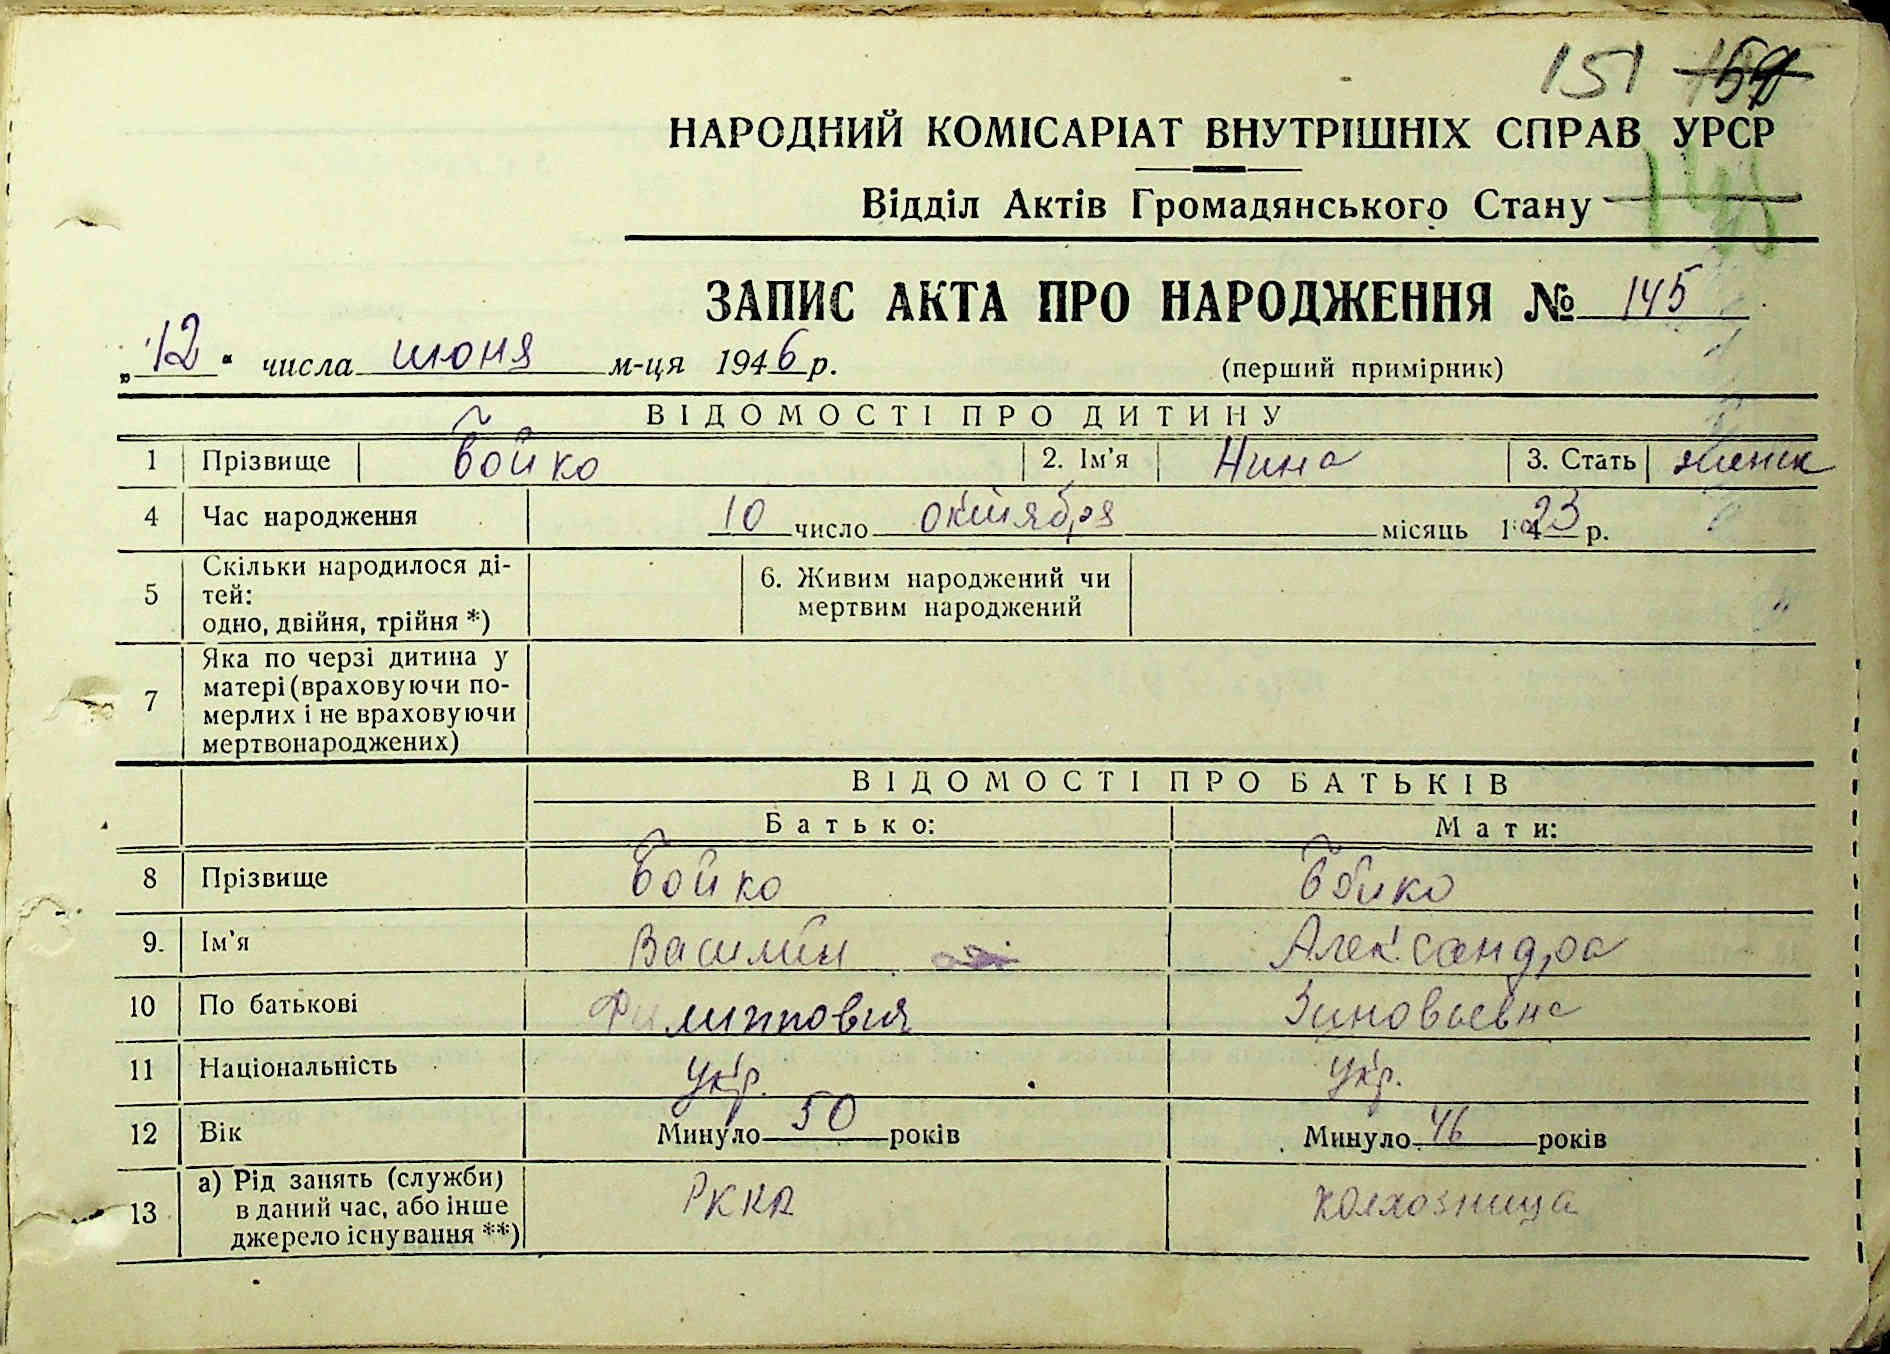 151
НАРОДНИЙ КОМІСАРІАТ ВНУТРІШНІХ СПРАВ УРСР
Відділ Актів Громадянського Стану
ЗАПИС АКТА ПРО НАРОДЖЕННЯ № 145
„12“ числа июня м-ця 1946 р. (перший примірник)
ВІДОМОСТІ ПРО ДИТИНУ
1 Прізвище Бойко 2. Ім'я Нина 3. Стать женск
4 Час народження 10 число октября місяць 1923 р.
5 Скільки народилося ді-
тей:
одно, двійня, трійня *)
6. Живим народжений чи
мертвим народжений
7 Яка по черзі дитина у
матері (враховуючи по-
мерлих і не враховуючи
мертвонароджених)
ВІДОМОСТІ ПРО БАТЬКІВ
Батько: Мати:
8 Прізвище Бойко Бойко
9. Ім'я Василий Александра
10 По батькові Филиппович Зиновьевна
11 Національність укр. укр.
12 Вік Минуло 50 років Минуло 46 років
13 а) Рід занять (служби)
в даний час, або інше
джерело існування **)
РККА колхозница